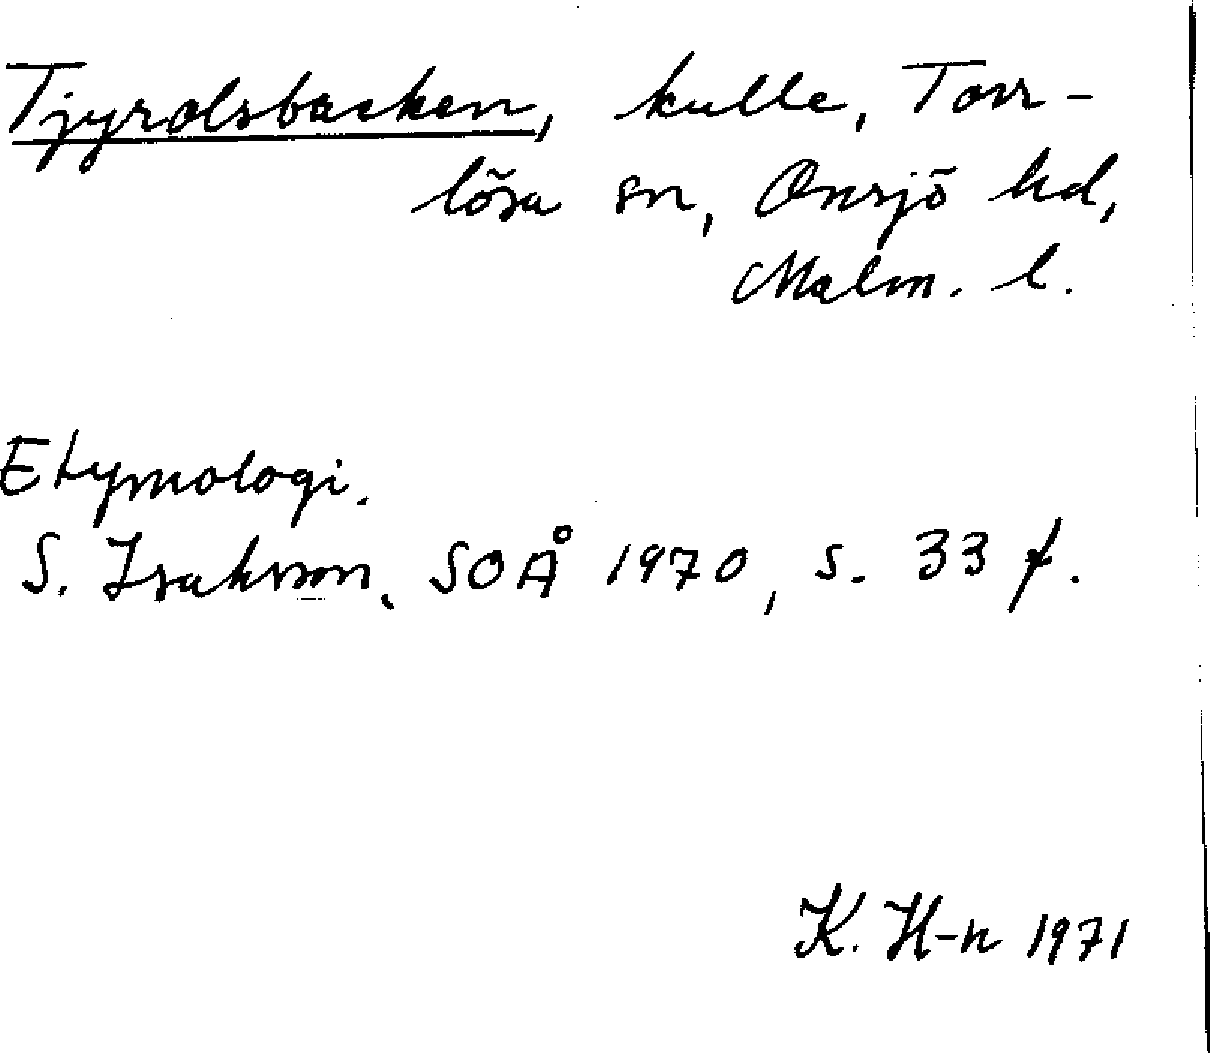 Tjyrolsbacken, kulle, Torr-
lösa sn, Onsjö hd,
Malm. l.
Etymologi.
S. Isaksson, SOÅ 1970, s. 33 f.
K. H-n 1971